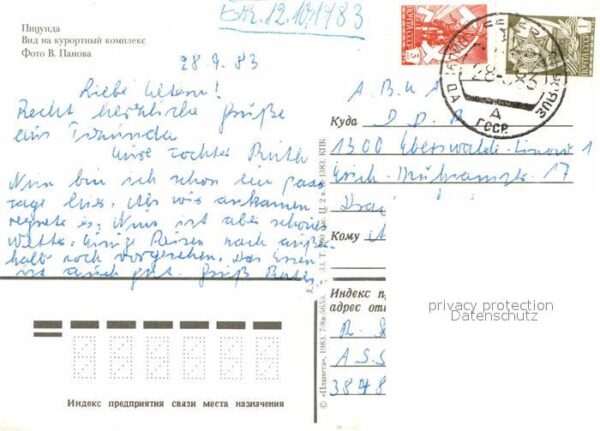 Btr. 12.10.1983
Пицунда
Вид на курортный комплекс
Фото В. Панова
28.9.83
Liebe Eltern!
Recht herzliche Grüße
aus Pizunda
eure Tochter Ruth
Nun bin ich schon ein paar
Tage hier. Als wir ankamen
regnete es. Nun ist aber schönes
Wetter. Einige Reisen nach außer-
halb noch vorgesehen. Das Essen
ist auch gut. Gruß Ruth
ПОЧТА СССР
ПОЧТА СССР
28-9 83
ГССР
Куда
D D R
1300 Eberswalde-Finow 1
Erich-Mühsamstr. 17
Кому
Индекс пр
адрес отп
R.
3848
© «Планета», 1983.
Индекс предприятия связи места назначения
privacy protection
Datenschutz